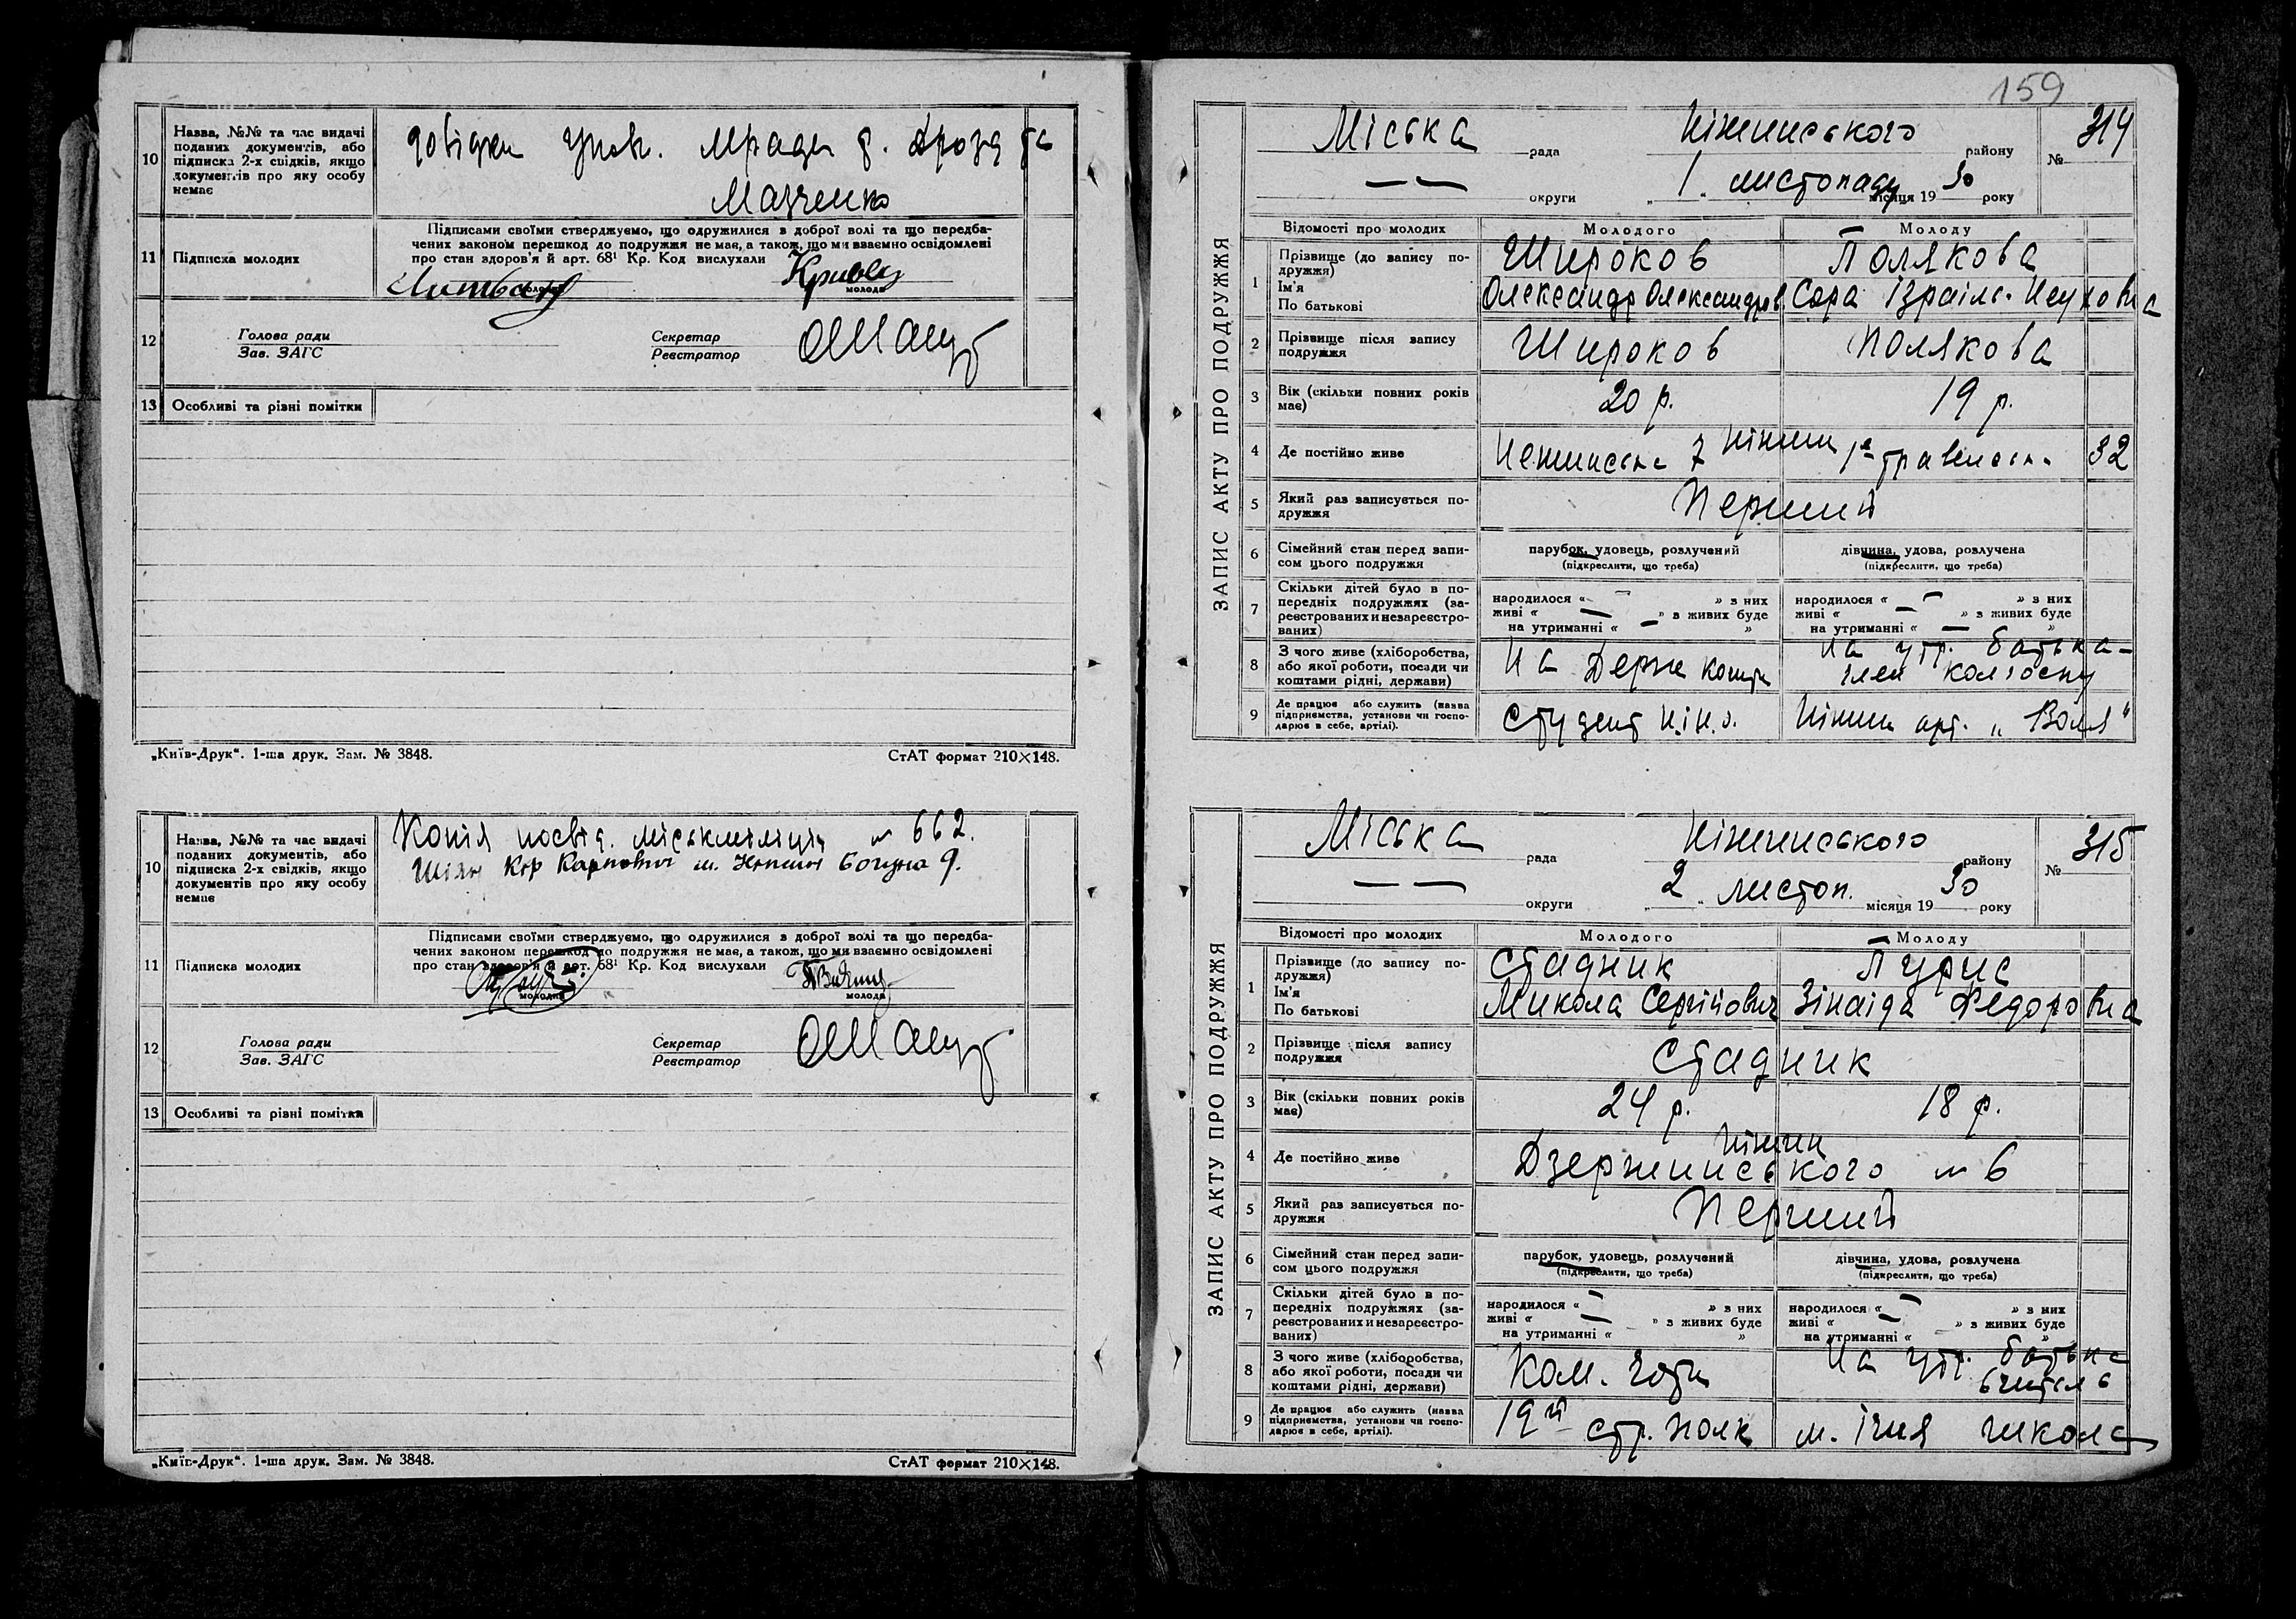 10
Назва, №№ та час видачі
поданих документів, або
підписка 2-х свідків, якщо
документів про яку особу
немає
довідки упов. мради т. Дрозд та
11
Підписка молодих
Підписами своїми стверджуємо, що одружилися з доброї волі та що передба-
чених законом перешкод до подружжя не має, а також, що ми взаємно освідомлені
про стан здоров'я й арт. 68¹ Кр. Код вислухали
молодий
молода
12
Голова ради
Зав. ЗАГС
Секретар
Реєстратор
13
Особливі та різні помітки
„Київ-Друк“. 1-ша друк. Зам. № 3848.
СтАТ формат 210×148.
10
Назва, №№ та час видачі
поданих документів, або
підписка 2-х свідків, якщо
документів про яку особу
немає
Копія посвід. міськміліції № 662.
Карпович м. Ніжин Богуна 9.
11
Підписка молодих
Підписами своїми стверджуємо, що одружилися з доброї волі та що передба-
чених законом перешкод до подружжя не має, а також, що ми взаємно освідомлені
про стан здоров'я й арт. 68¹ Кр. Код вислухали
молодий
молода
12
Голова ради
Зав. ЗАГС
Секретар
Реєстратор
13
Особливі та різні помітки
„Київ-Друк“. 1-ша друк. Зам. № 3848.
СтАТ формат 210×148.
159
ЗАПИС АКТУ ПРО ПОДРУЖЖЯ
Міська рада Ніжинського району № 314
— — округи „1“ листопаду місяця 1930 року
Відомості про молодих
Молодого
Молоду
1
Прізвище (до запису по-
дружжя)
Ім'я
По батькові
Широков
Полякова
Олександр Олександров.
Сора Ізраіль-Неуховна
2
Прізвище після запису
подружжя
Широков
Полякова
3
Вік (скільки повних років
має)
20 р.
19 р.
4
Де постійно живе
Ніжин
7
1ª травнева
32
5
Який раз записується по-
дружжя
Перший
6
Сімейний стан перед запи-
сом цього подружжя
парубок, удовець, розлучений
(підкреслити, що треба)
дівчина, удова, розлучена
(підкреслити, що треба)
7
Скільки дітей було в по-
передніх подружжях (за-
реєстрованих и незареєстро-
ваних)
народилося « — » з них
живі « — » з живих буде
на утриманні « — »
народилося « — » з них
живі « — » з живих буде
на утриманні « — »
8
З чого живе (хліборобства,
або якої роботи, посади чи
коштами рідні, держави)
На Держ кошти
на утр. батька-
член колгоспу
9
Де працює або служить (назва
підприємства, установи чи госпо-
дарює в себе, артілі).
Студент Н.І.Н.О.
Ніжин арт. „Воля“
ЗАПИС АКТУ ПРО ПОДРУЖЖЯ
Міська рада Ніжинського району № 315
— — округи „2“ листоп. місяця 1930 року
Відомості про молодих
Молодого
Молоду
1
Прізвище (до запису по-
дружжя)
Ім'я
По батькові
Стадник
Пурис
Микола Сергійович
Зінаіда Федоровна
2
Прізвище після запису
подружжя
Стадник
3
Вік (скільки повних років
має)
24 р.
18 р.
4
Де постійно живе
Ніжин
Дзержинського № 6
5
Який раз записується по-
дружжя
Перший
6
Сімейний стан перед запи-
сом цього подружжя
парубок, удовець, розлучений
(підкреслити, що треба)
дівчина, удова, розлучена
(підкреслити, що треба)
7
Скільки дітей було в по-
передніх подружжях (за-
реєстрованих и незареєстро-
ваних)
народилося « — » з них
живі « — » з живих буде
на утриманні « »
народилося « — » з них
живі « — » з живих буде
на утриманні « »
8
З чого живе (хліборобства,
або якої роботи, посади чи
коштами рідні, держави)
Ком. чоти
На утр. батька
вчитель
9
Де працює або служить (назва
підприємства, установи чи госпо-
дарює в себе, артілі).
19й стр. полк
м. Ічня школа